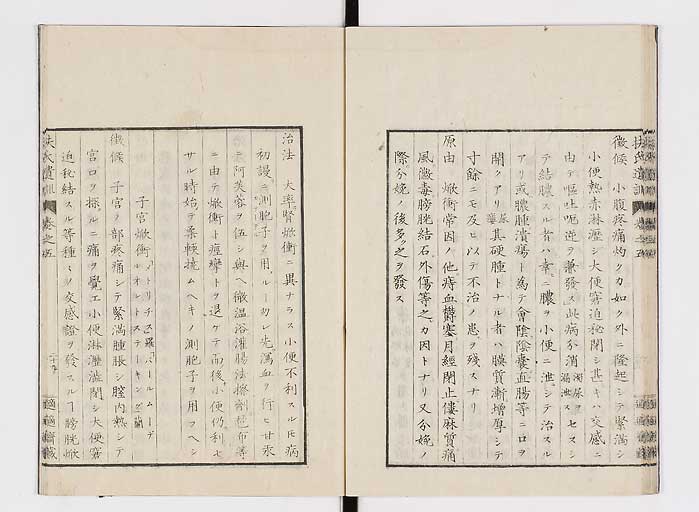 徴候 小腹疼痛灼クカ如ク外ニ隆起シテ緊満シ
小便熱赤淋瀝シ大便窘迫秘閉シ甚キハ交感ニ
由テ嘔吐呃逆ヲ兼發ス此病分消濁尿ヲ漏泄スセスシ
テ結膿スル者ハ幸ニ膿ヲ小便ニ泄シテ治スル
アリ或膿腫潰瘍ト為テ會陰陰囊直腸等ニ口ヲ
開クアリ其硬腫トナル者ハ膜質漸増厚シテ
寸餘ニモ及ヒ以テ不治ノ患ヲ殘スナリ
原由 焮衝常因ノ他痔血欝塞月經閉止僂麻質痛
風黴毒膀胱結石外傷等之カ因トナリ又分娩ノ
際分娩ノ後多ク之ヲ發ス
治法 大率腎焮衝ニ異ナラス小便不利スル氏病
初謾ニ測胞子ヲ用ルヿ勿レ先瀉血ヲ行ヒ甘汞
ニ阿芙蓉ヲ伍シ與ヘ微温浴灌腸法擦劑琶布等
ニ由テ焮衝ト痙攣トヲ退ケテ而後小便仍利セ
サル時始テ柔軟撓ムヘキノ測胞子ヲ用フヘシ
子宮焮衝
徴候 子宮ノ部疼痛シテ緊満腫脹シ腟内熱シテ
宮口ヲ探ルニ痛ヲ覺エ小便淋瀝澁閉シ大便窘
迫秘結スル等種々ノ交感證ヲ發スルヿ膀胱焮
扶氏遺訓 卷之五